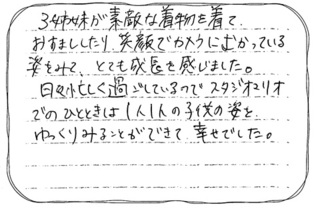 3姉妹が素敵な着物を着て、
おすまししたり、笑顔でカメラにむかっている
姿をみて、とても成長を感じました。
日々忙しく過ごしているのでスタジオマリオ
でのひとときは1人1人の子供の姿を
ゆっくりみることができて幸せでした。